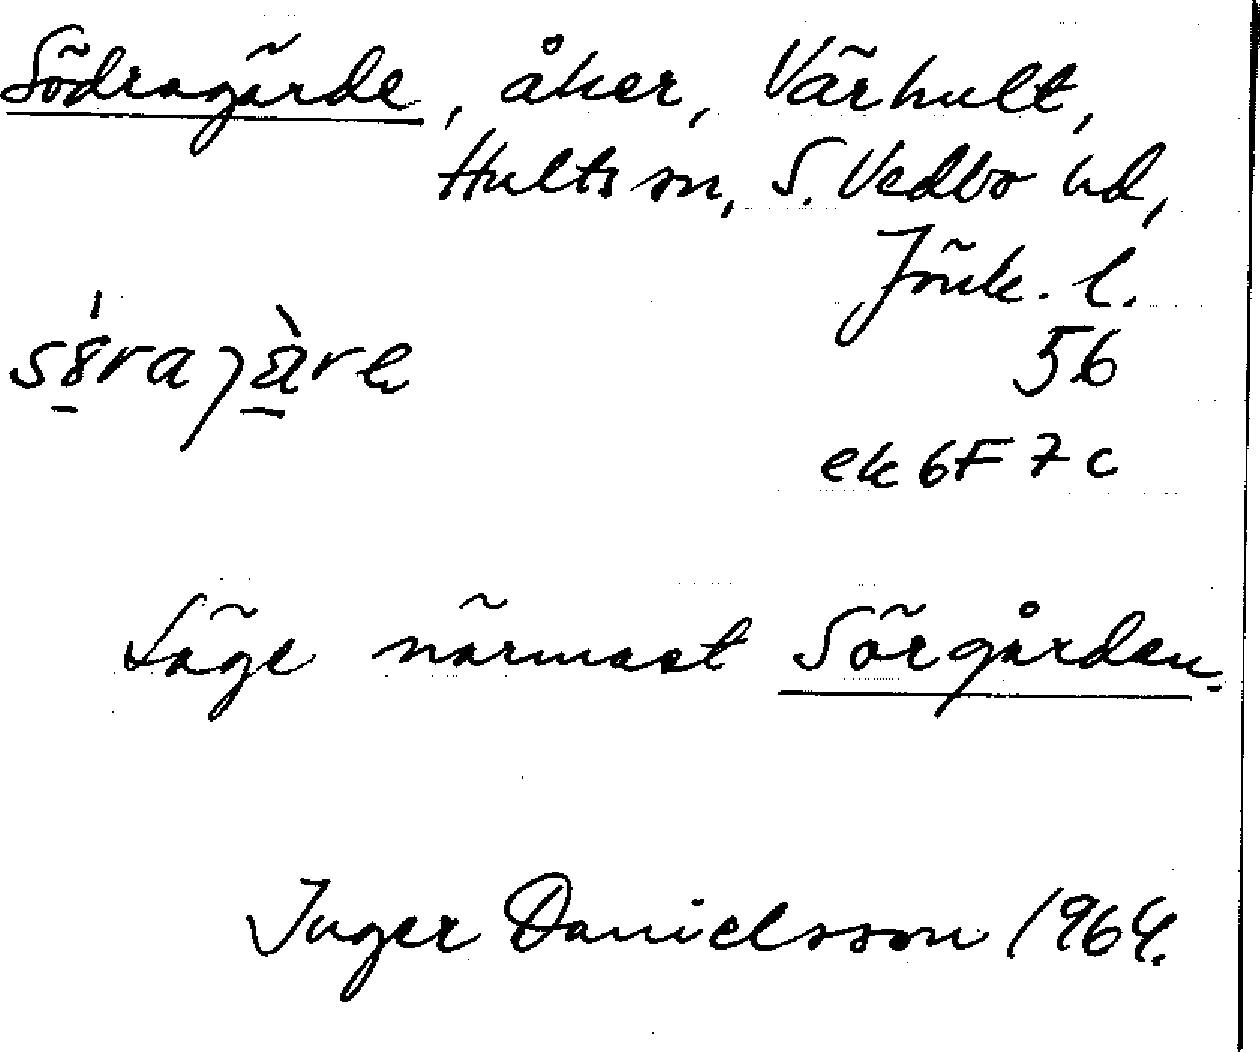 Södragärde, åker, Värhult,
Hults sn, S. Vedbo hd,
Jönk. l.
56
ek 6F 7c
Läge närmast Sörgården.
Inger Danielsson 1964.